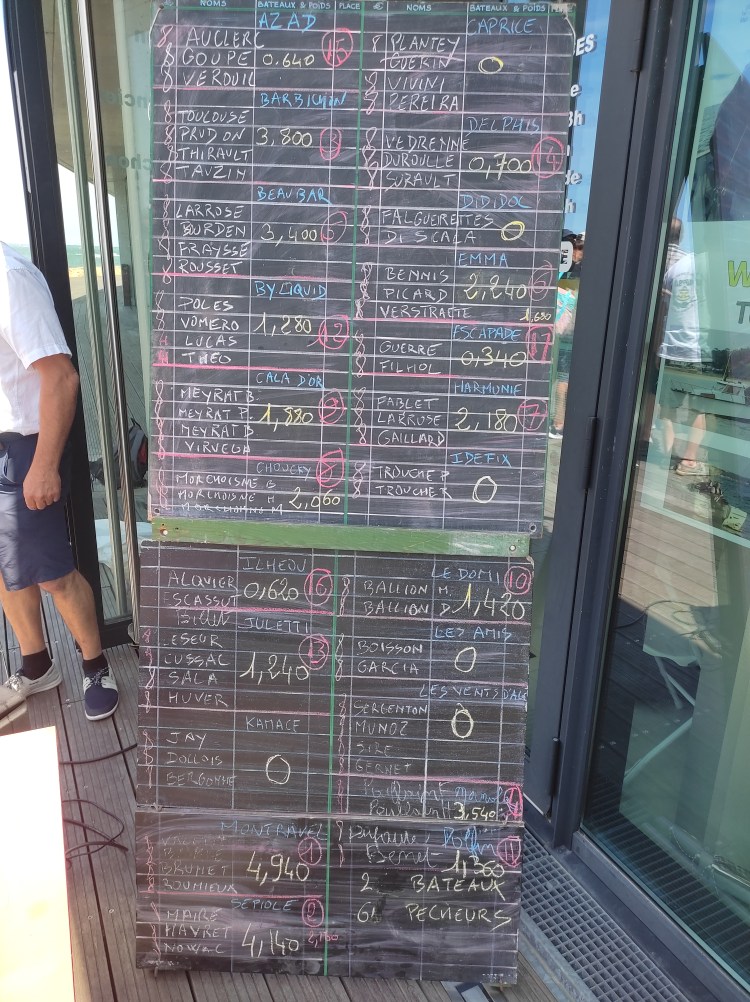 NOMS BATEAUX & POIDS PLACE
AZAD
AUCLERC
GOUPE 0.640 15
VERDUIL
BARBICHON
TOULOUSE
PRUDON 3,800 3
THIRAULT
TAUZIN
BEAUBAR
LARROSE
BURDEN 3,400
FRAYSSE
ROUSSET
BY LIQUID
POLES
VOMERO 1,280 12
LUCAS
THEO
CALA D'OR
MEYRAT B.
MEYRAT P. 1,880
MEYRAT B
VIRVEGA
CHOUCRY 8
MORCHOISNE G
MORCHOISNE H 2,060
MORCHOISNE M
NOMS BATEAUX & POIDS
CAPRICE
PLANTEY
GUERIN 0
VIVINI
PEREIRA
DELPHIS
VEDRENNE
DUROULLE 0,700 14
SURAULT
DIDIDOL
FALGUEIRETTES
DI SCALA 0
EMMA
BENNIS
PICARD 2,240 6
VERSTRAETE 1,680
ESCAPADE 17
GUERRE 0,340
FILHOL
HARMONIE
FABLET
LARROSE 2,180 7
GAILLARD
IDEFIX
TROUCHE P
TROUCHE R 0
ILHEOU
ALQUIER 0,620 16
ESCASSUT
JULETTI
LESEUR
CUSSAC 1,240 13
SALA
HUVER
KAMACE
JAY
DOLLOIS 0
BERGONNE
MONTRAVEL
1
BRUNET 4,940
ROUMIEUX
SEPIOLE 2
MAIRE
HAVRET 4,140 2,160
NOWAC
LE DOMI 10
BALLION M. 1,420
BALLION D.
LES AMIS
BOISSON 0
GARCIA
LES VENTS D'ALE
SERGENTON
MUNOZ 0
SIRE
GERNET
3,540
11
1,360
2 BATEAUX
61 PECHEURS